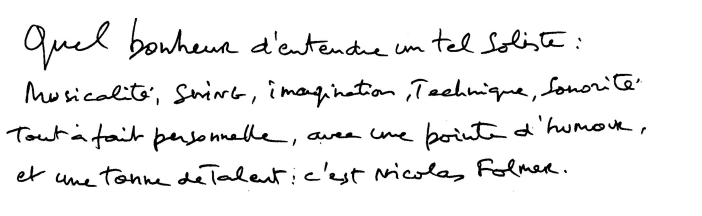 Quel bonheur d'entendre un tel soliste :
Musicalité, SWING, imagination, Technique, Sonorité
Tout à fait personnelle, avec une pointe d'humour,
et une tonne de Talent : c'est Nicolas Folmer.